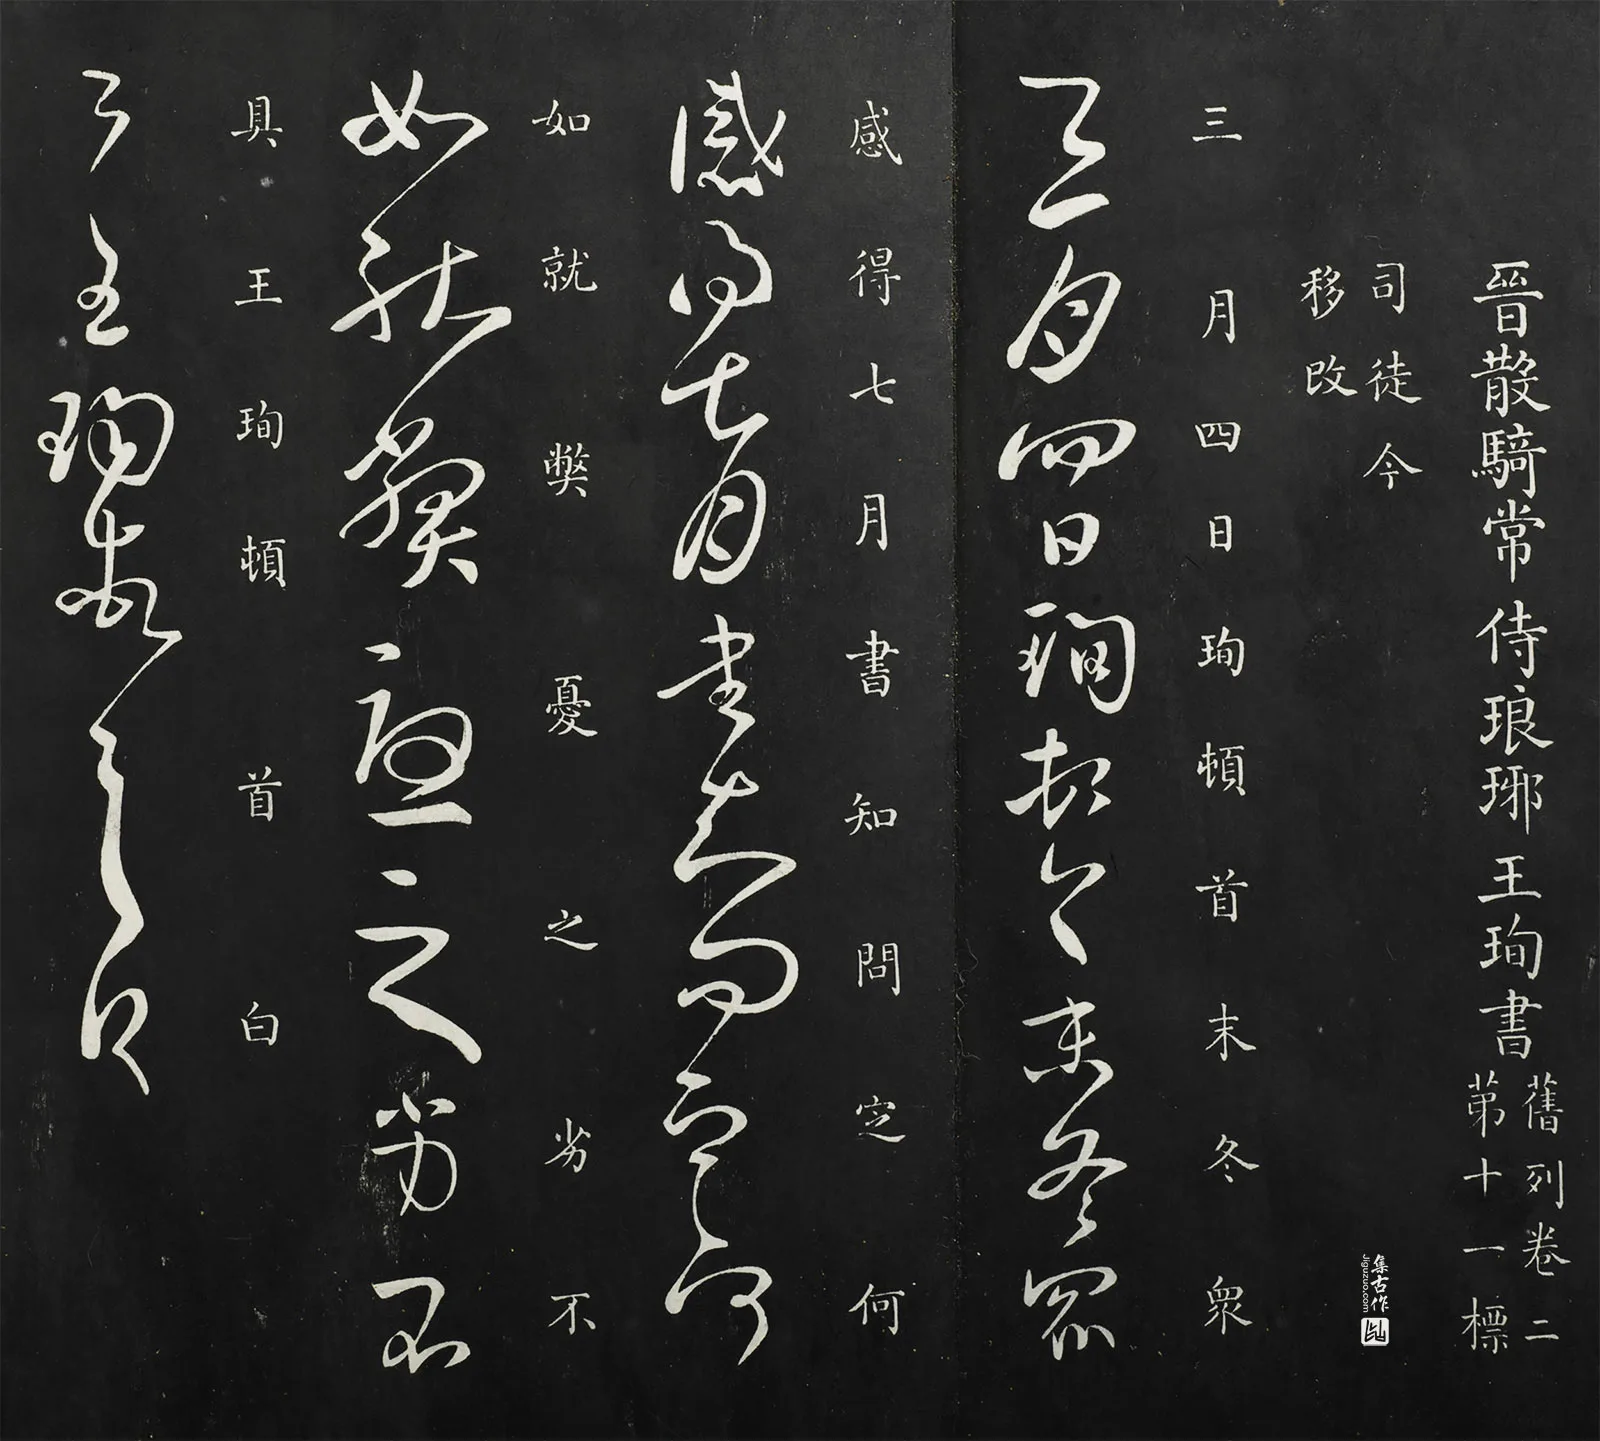 晉散騎常侍琅琊王珣書
舊列卷二
第十一標
司徒今
移改
三月四日珣頓首末冬衆
三月四日珣頓首末冬衆
感得七月書知問㝎何
感得七月書知問㝎何
如就弊憂之劣不
如就弊憂之劣不
具王珣頓首白
具王珣頓首白
集古作
Jiguzuo.com